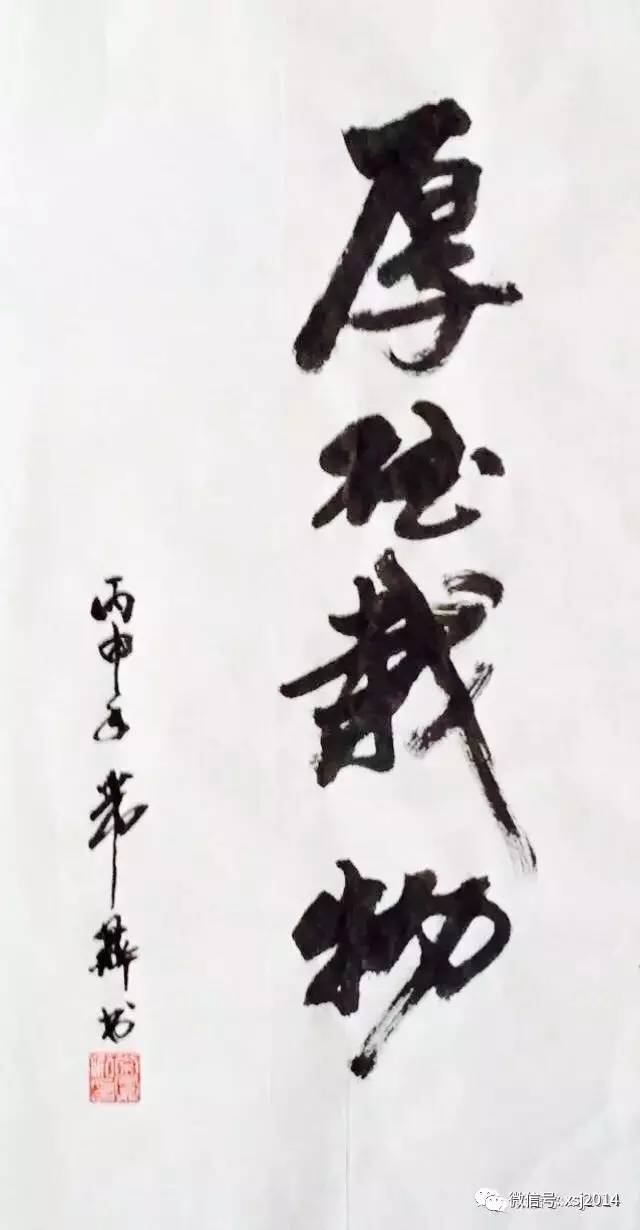 厚德载物
丙申年
书
微信号: xsj2014